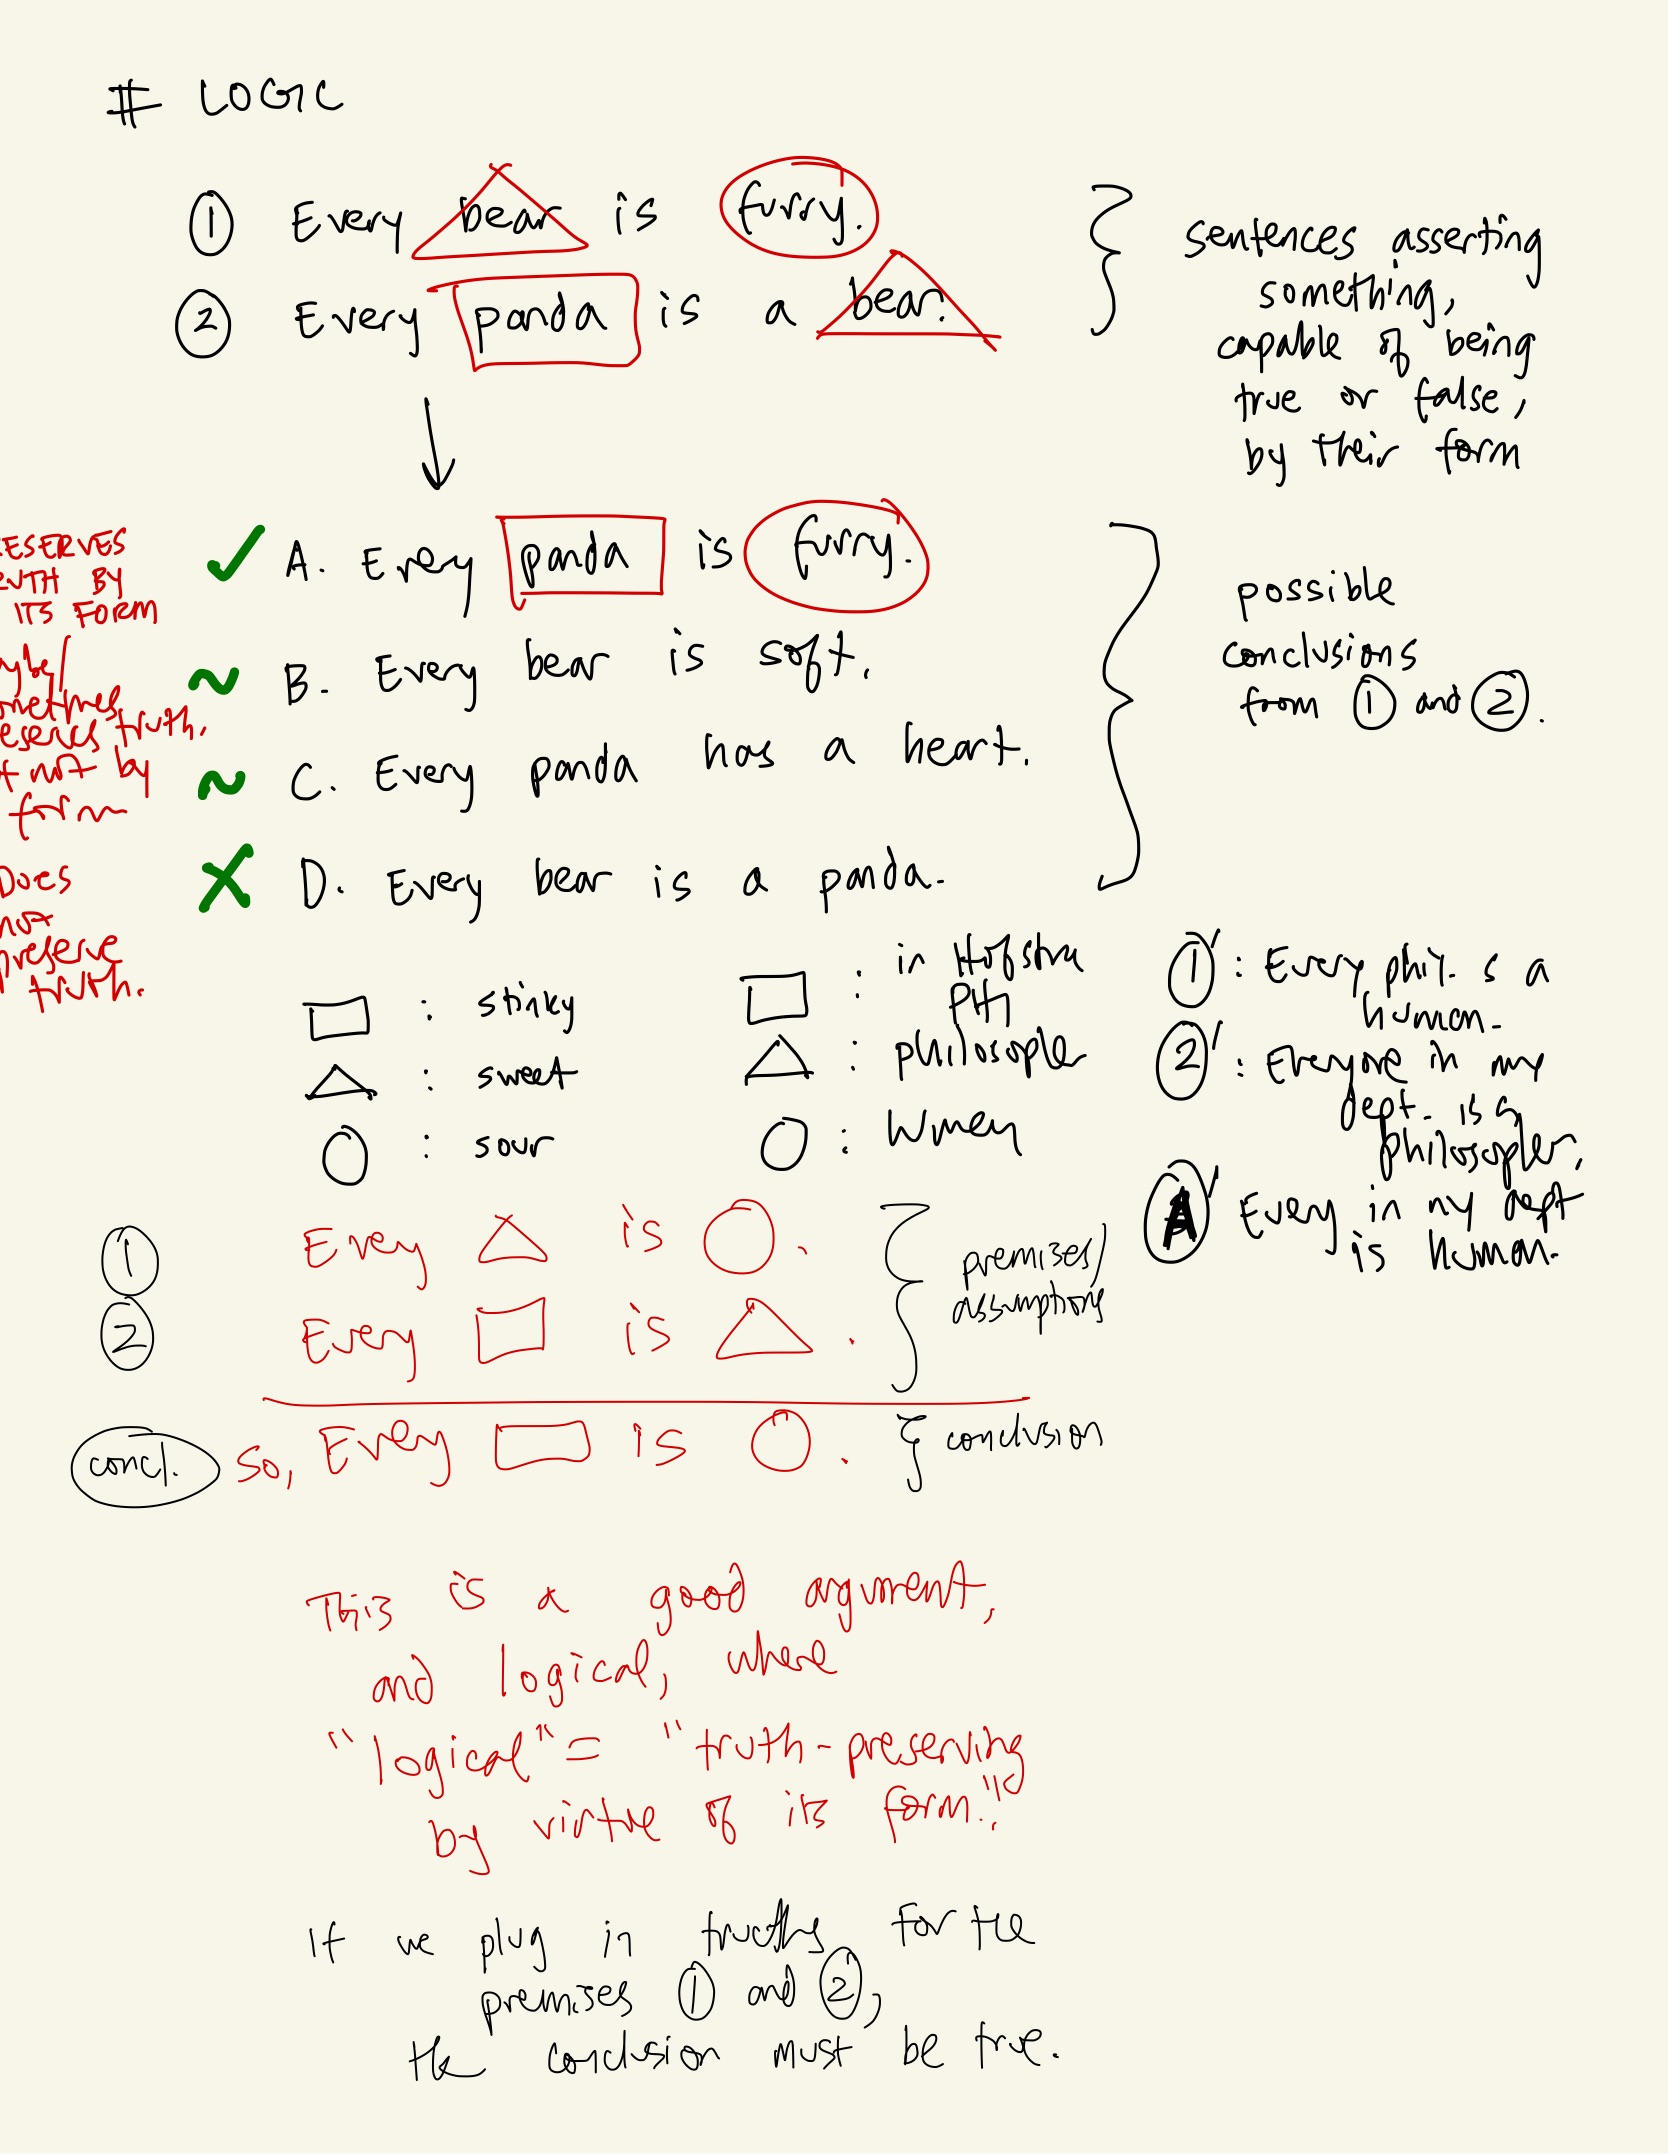 # LOGIC
① Every bear is furry.
② Every panda is a bear.
sentences asserting
something,
capable of being
true or false,
by their form
ESERVES
UTH BY
ITS FORM
✓ A. Evey panda is furry.
~ B. Every bear is soft.
~ C. Every panda has a heart.
X D. Every bear is a panda.
ybe/
ometimes
eserves truth,
t not by
form
Does
not
preserve
truth.
possible
conclusions
from ① and ②.
□ : stinky
△ : sweet
○ : sour
□ : in Hofstra
PHI
△ : philosopher
○ :
①′ : Every phil. is a
human.
②′ : Everyone in my
dept. is a
philosopher.
A′ Every in my dept
is human.
① Every △ is ○.
② Every □ is △.
premises/
assumptions
concl. So, Every □ is ○.
conclusion
This is a good argument,
and logical, where
"logical" = "truth-preserving
by virtue of its form."
If we plug in truths for the
premises ① and ②,
the conclusion must be true.